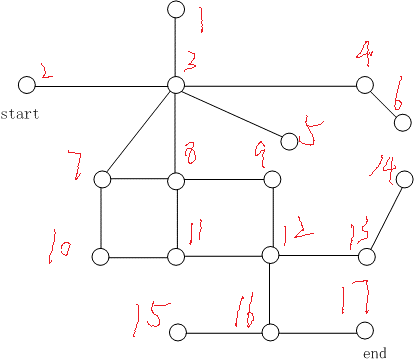 1
2
3
4
start
6
5
7
8
9
14
10
11
12
13
15
16
17
end